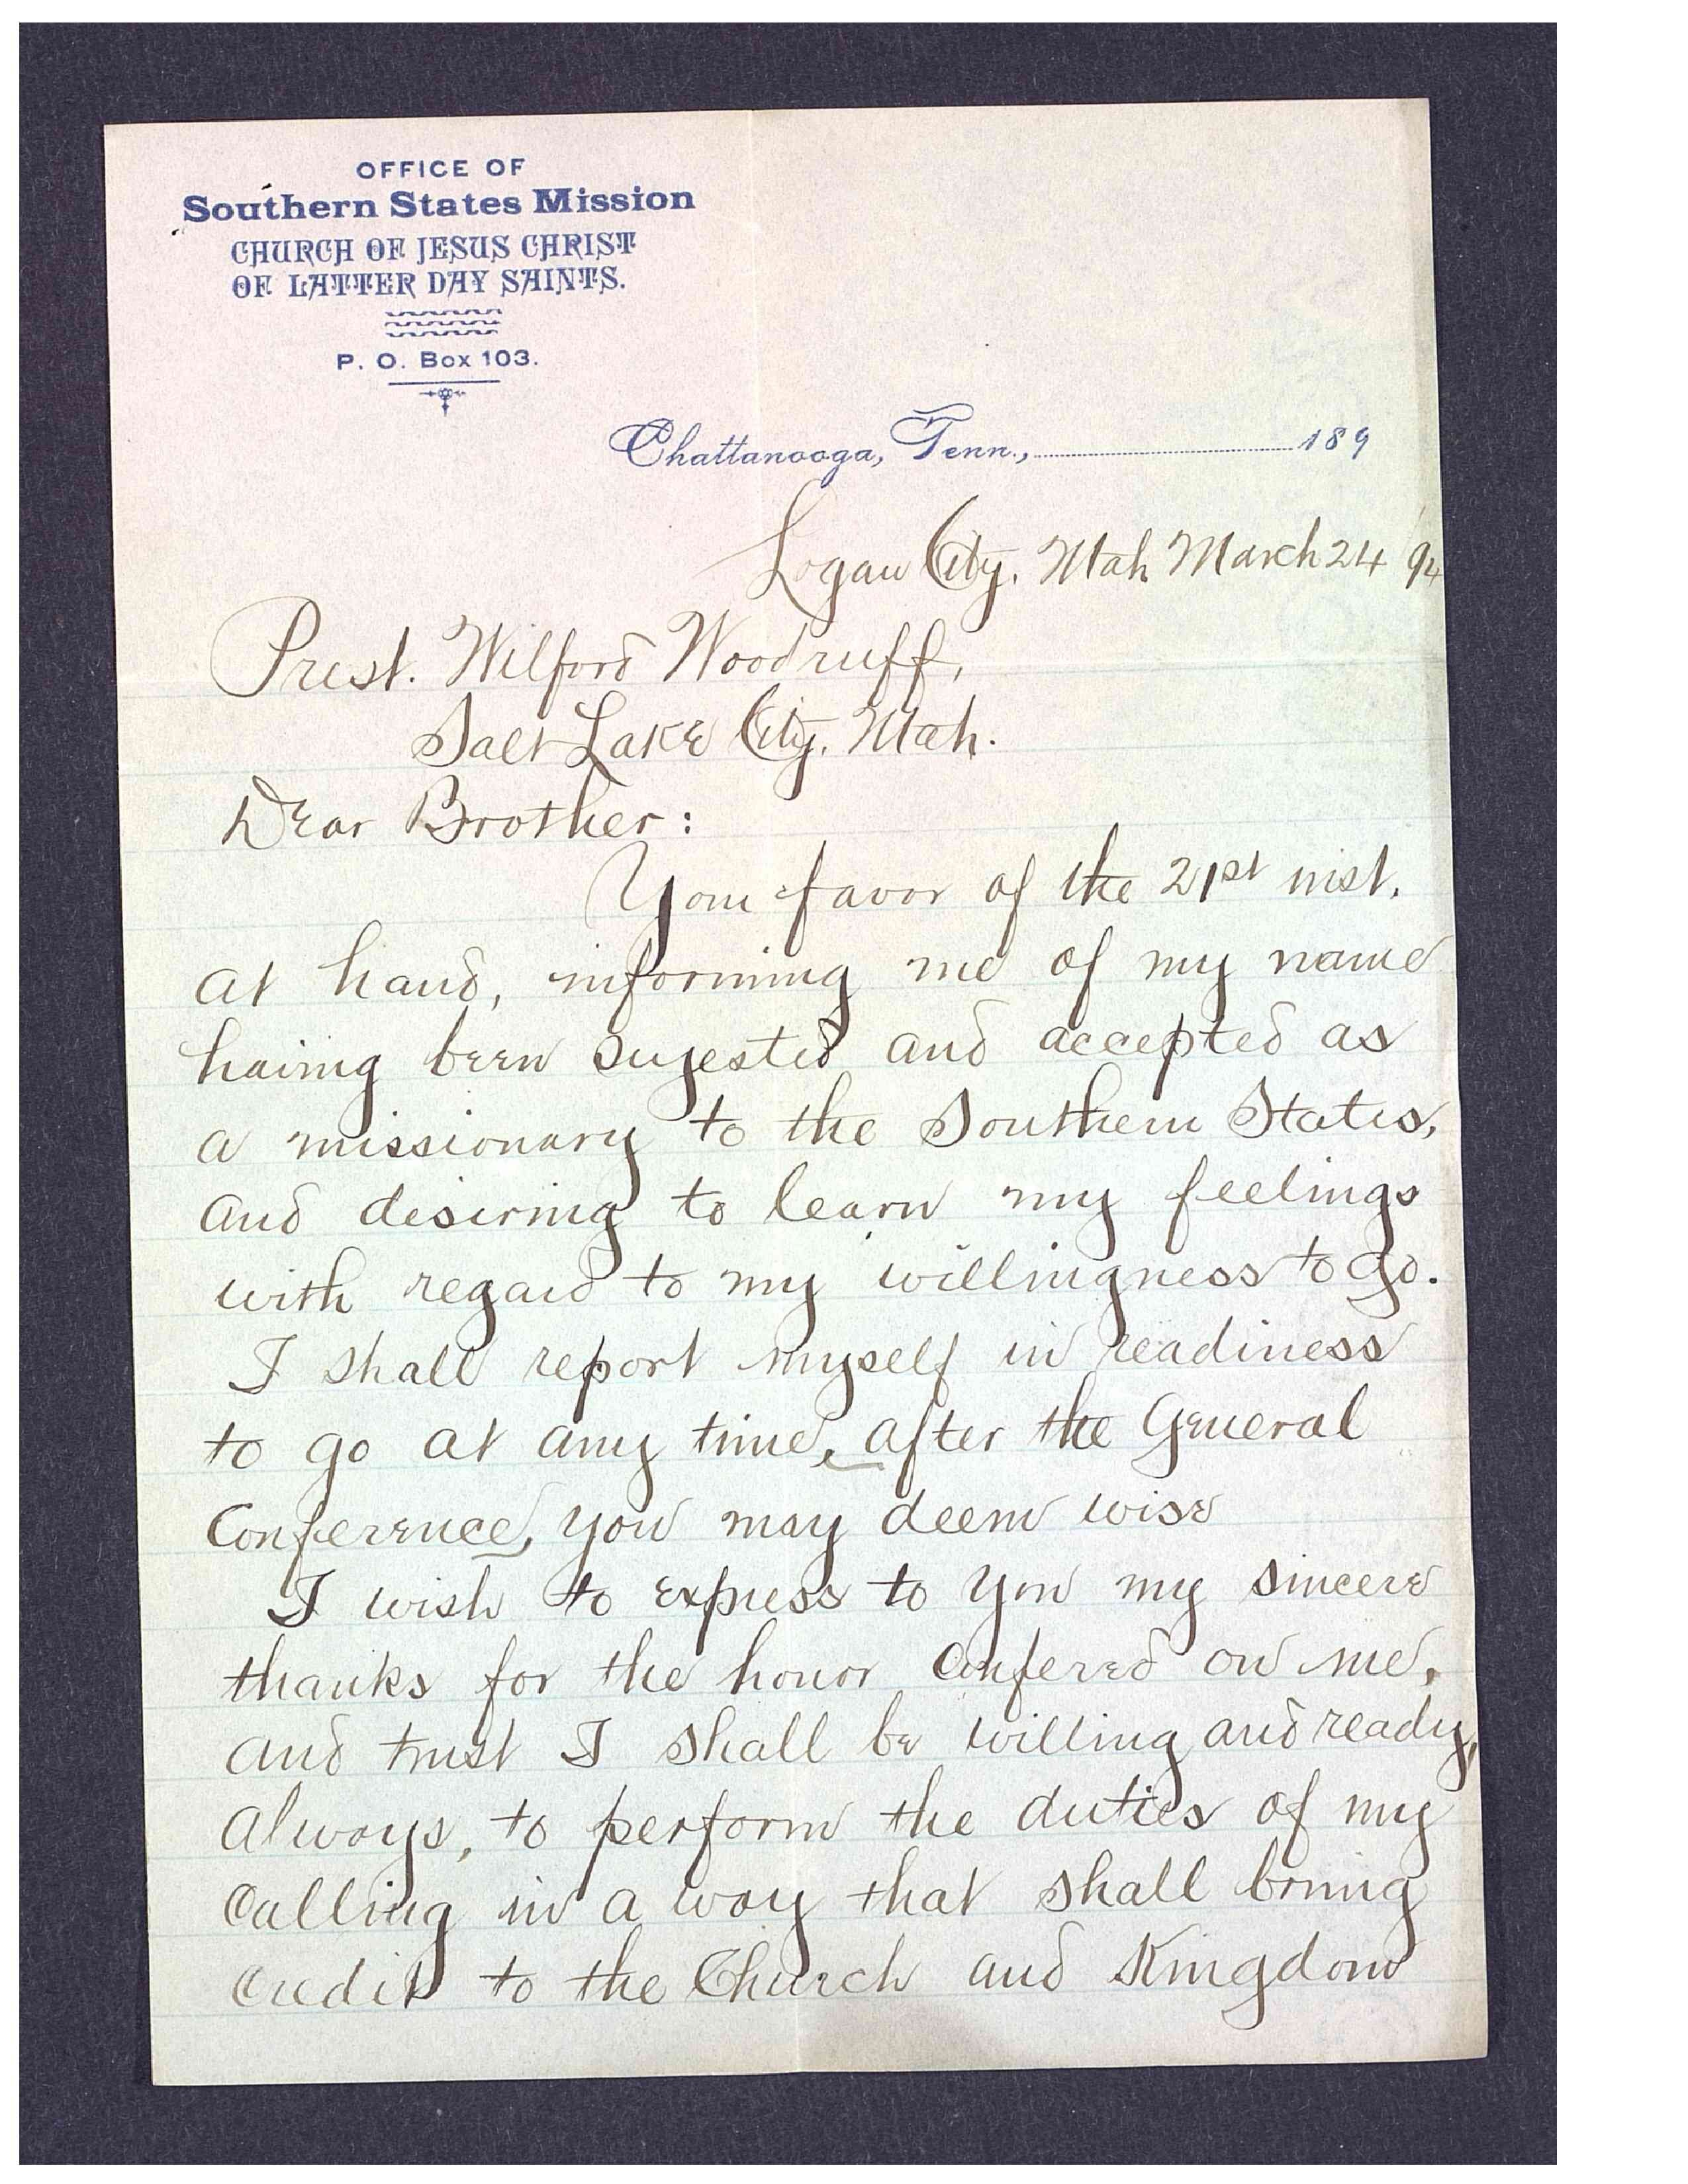 OFFICE OF
Southern States Mission
CHURCH OF JESUS CHRIST
OF LATTER DAY SAINTS.
P. O. Box 103.
Chattanooga, Tenn., 189
Logan City, Utah March 24 94
Prest. Wilford Woodruff,
Salt Lake City, Utah.
Dear Brother:
Your favor of the 21st inst.
at hand, informing me of my name
having been sujested and accepted as
a missionary to the Southern States,
and desiring to learn my feelings
with regard to my willingness to go.
I shall report myself in readiness
to go at any time, after the General
Conference, you may deem wise
I wish to express to you my sincere
thanks for the honor confered on me,
and trust I shall be willing and ready,
always, to perform the duties of my
calling in a way that shall bring
credit to the Church and Kingdom